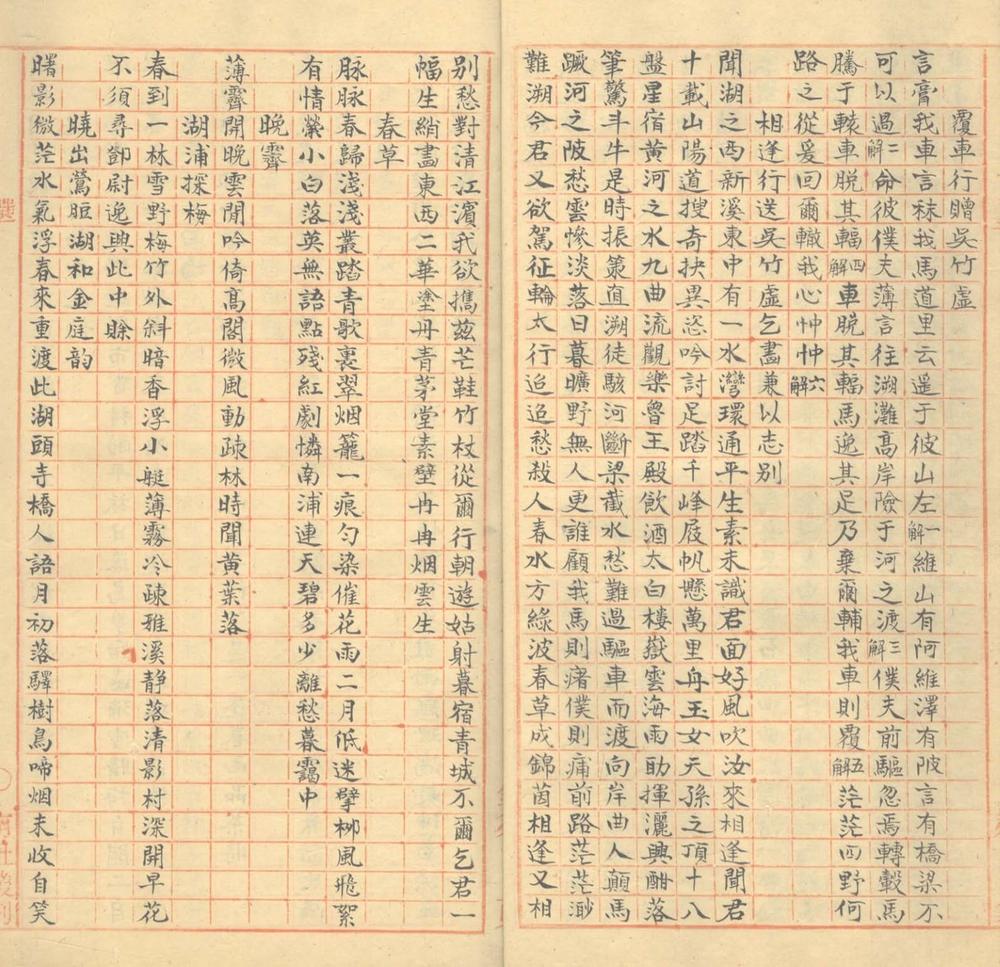 覆車行贈吳竹虛
言膏我車言秣我馬道里云遥于彼山左一解維山有阿維澤有陂言有橋梁不
可以過二解命彼僕夫薄言往溯灘高岸險于河之渡三解僕夫前驅忽焉轉轂馬
騰于轅車脫其輻四解車脫其輻馬逸其足乃棄爾輔我車則覆五解茫茫四野何
路之從爰回爾轍我心忡忡六解
相逢行送吳竹虛乞畫兼以志别
聞湖之西新溪東中有一水灣環通平生素未識君面好風吹汝來相逢聞君
十載山陽道搜奇抉異恣吟討足踏千峰屐帆懸萬里舟玉女天孫之頂十八
盤星宿黃河之水九曲流觀樂魯王殿飲酒太白樓嶽雲海雨助揮灑興酣落
筆驚斗牛是時振策直溯徒駭河斷梁截水愁難過驅車而渡向岸曲人顛馬
蹶河之陂愁雲慘淡落日暮曠野無人更誰顧我馬則瘏僕則痡前路茫茫渺
難溯今君又欲駕征輪太行迢迢愁殺人春水方綠波春草成錦茵相逢又相
别愁對清江濱我欲攜茲芒鞋竹杖從爾行朝遊姑射暮宿青城不爾乞君一
幅生綃畫東西二華塗丹青茅堂素壁冉冉烟雲生
春草
脉脉春歸淺淺叢踏青歌裏翠烟籠一痕勻染催花雨二月低迷擘柳風飛絮
有情縈小白落英無語點殘紅劇憐南浦連天碧多少離愁暮靄中
晚霽
薄霽開晚雲閒吟倚高閣微風動疎林時聞黃葉落
湖浦探梅
春到一林雪野梅竹外斜暗香浮小艇薄霧冷疎雅溪静落清影村深開早花
不須尋鄧尉逸興此中賒
曉出鶯脰湖和金庭韵
曙影微茫水氣浮春來重渡此湖頭寺橋人語月初落驛樹鳥啼烟未收自笑